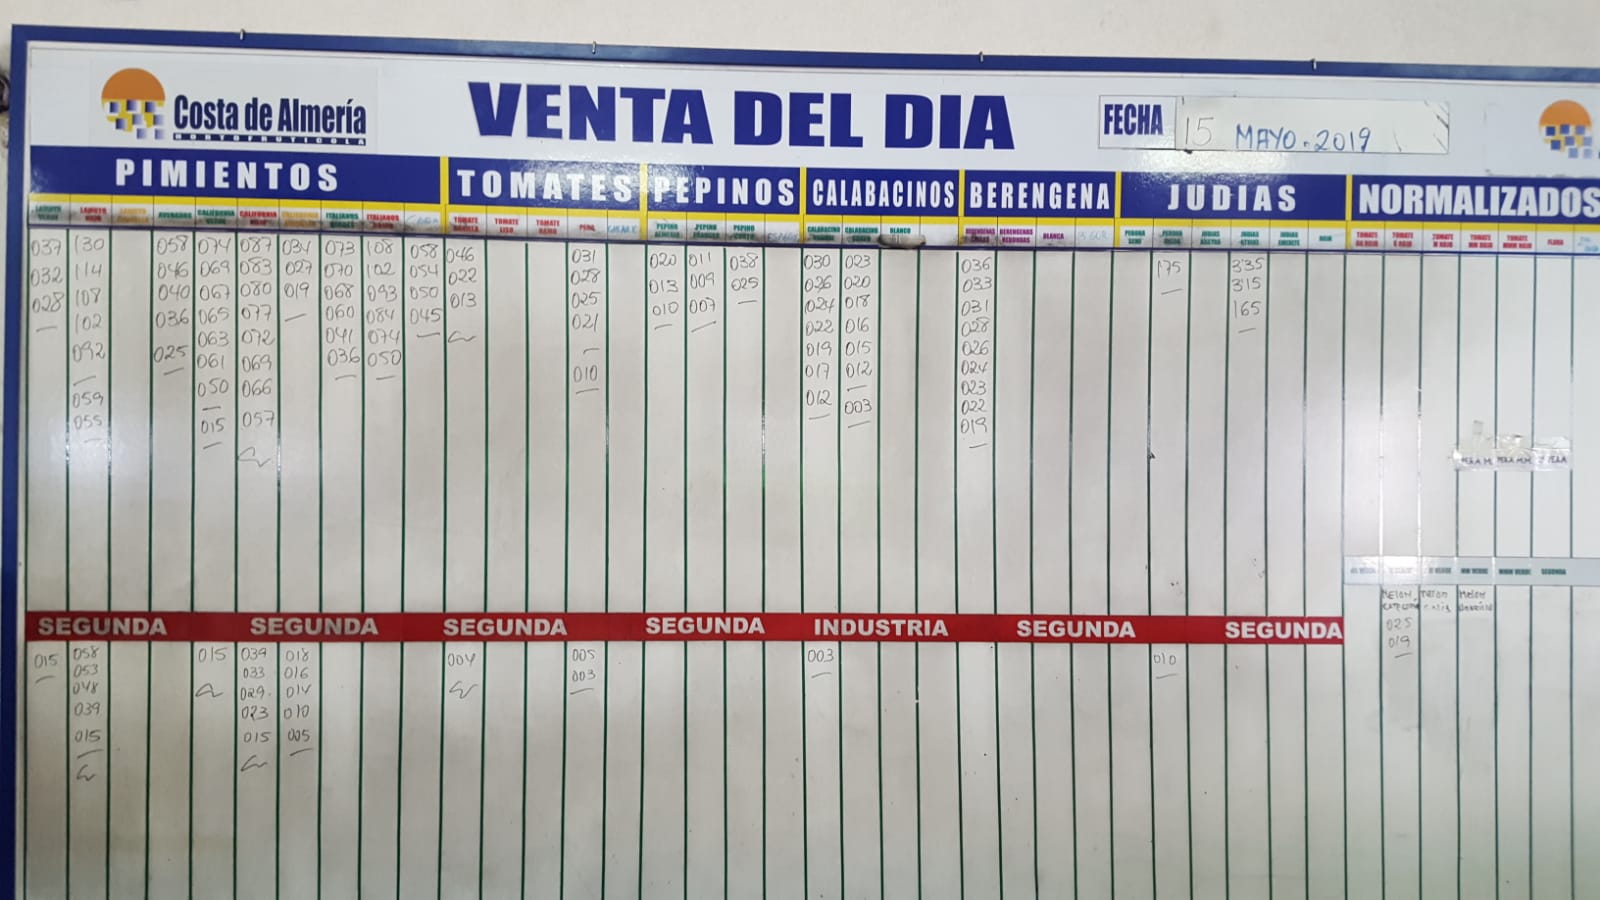 Costa de Almería
HORTOFRUTICOLA
VENTA DEL DIA
FECHA
15 MAYO.2019
PIMIENTOS TOMATES PEPINOS CALABACINOS BERENGENA JUDIAS NORMALIZADOS
LAMUYO VERDE
LAMUYO ROJO
ASURADOS
CALIFORNIA VERDE
CALIFORNIA ROJO
ITALIANOS VERDES
ITALIANOS ROJOS
TOMATE DANIELA
TOMATE LISO
TOMATE RAMO
PERA
PEPINO ALMERIA
PEPINO FRANCES
PEPINO CORTO
CALABACINO
CALABACINO GORDO
BLANCO
BERENGENAS LARGAS
BERENGENAS REDONDAS
BLANCA
PERONA SEMI
PERONA ROJAS
JUDIAS
JUDIAS
JUDIAS
ROJO
TOMATE GG ROJO
TOMATE G ROJO
TOMATE M ROJO
TOMATE MM ROJO
TOMATE MMM ROJO
FLORA
037 130 058 074 087 034 073 108 058 046 031 020 011 038 030 023 036 175 335
032 114 046 069 083 027 070 102 054 022 028 013 009 025 026 020 033 315
028 108 040 067 080 019 068 093 050 013 025 010 007 024 018 031 165
102 036 065 077 060 084 045 021 022 016 028
092 025 063 072 041 074 010 019 015 026
059 061 069 036 050 017 012 024
055 050 066 012 003 023
015 057 022
019
G VERDE M VERDE MM VERDE MMM VERDE SEGUNDA
MELON
MELON
025
019
SEGUNDA SEGUNDA SEGUNDA SEGUNDA INDUSTRIA SEGUNDA SEGUNDA
015 058 015 039 018 004 005 003 010
053 033 016 003
048 029 014
039 023 010
015 015 005